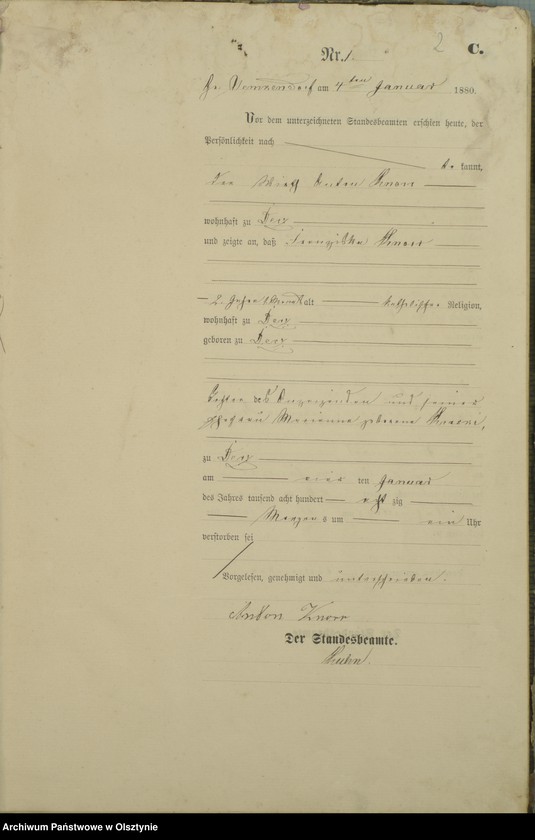 2 C.
Nr. 1.
am 4ten Januar 1880.
Vor dem unterzeichneten Standesbeamten erschien heute, der
Persönlichkeit nach
be kannt,
der Wirth Anton Knorr
wohnhaft zu
und zeigte an, daß Franziska Knorr
2 Jahre 1 Monat alt katholischer Religion,
wohnhaft zu
geboren zu
Tochter des Anzeigenden und seiner
Ehefrau Marianna geborene
zu
am ten Januar
des Jahres tausend acht hundert acht zig
Morgens um ein Uhr
verstorben sei
Vorgelesen, genehmigt und unterschrieben.
Anton Knorr
Der Standesbeamte.
Archiwum Państwowe w Olsztynie